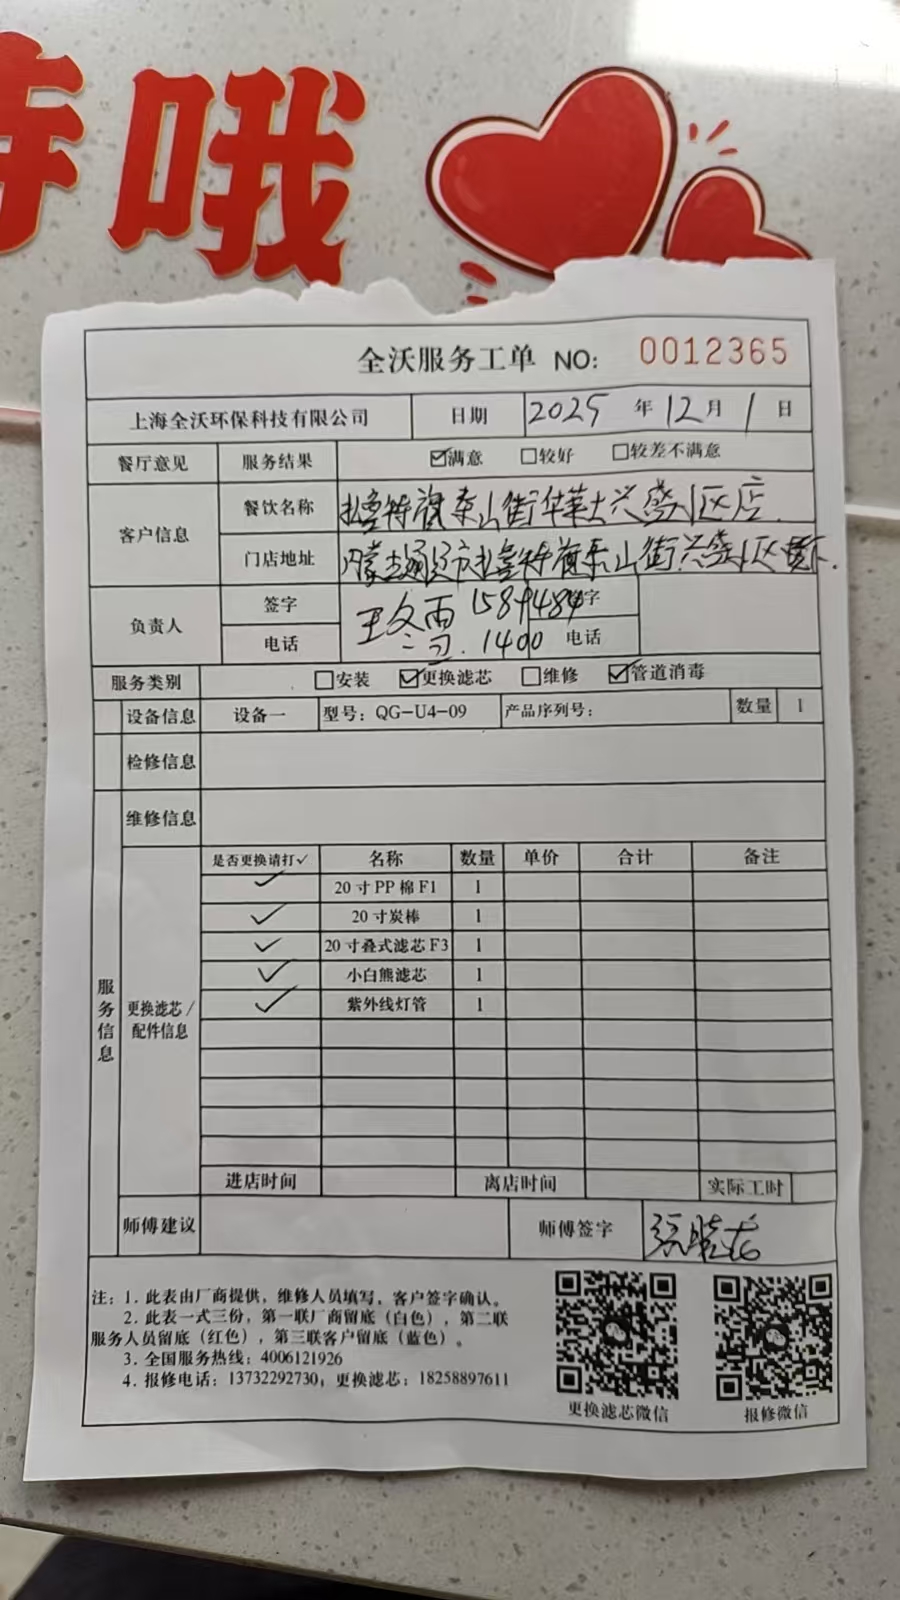 待哦
全沃服务工单 NO: 0012365
上海全沃环保科技有限公司 日期 2025 年 12 月 1 日
餐厅意见 服务结果 ☑满意 □较好 □较差不满意
客户信息 餐饮名称 扎鲁特旗泰山街华莱士兴盛小区店
门店地址 内蒙古通辽市扎鲁特旗泰山街兴盛小区楼下.
负责人 签字 王冬雪 1589484 签字
电话 1400 电话
服务类别 □安装 ☑更换滤芯 □维修 ☑管道消毒
设备信息 设备一 型号: QG-U4-09 产品序列号: 数量 1
检修信息
维修信息
服务信息 更换滤芯/配件信息
是否更换请打✓ 名称 数量 单价 合计 备注
✓ 20寸PP棉F1 1
✓ 20寸炭棒 1
✓ 20寸叠式滤芯F3 1
✓ 小白熊滤芯 1
✓ 紫外线灯管 1
进店时间 离店时间 实际工时
师傅建议 师傅签字 张晓龙
注: 1. 此表由厂商提供, 维修人员填写, 客户签字确认。
2. 此表一式三份, 第一联厂商留底 (白色), 第二联
服务人员留底 (红色), 第三联客户留底 (蓝色)。
3. 全国服务热线: 4006121926
4. 报修电话: 13732292730, 更换滤芯: 18258897611
更换滤芯微信 报修微信